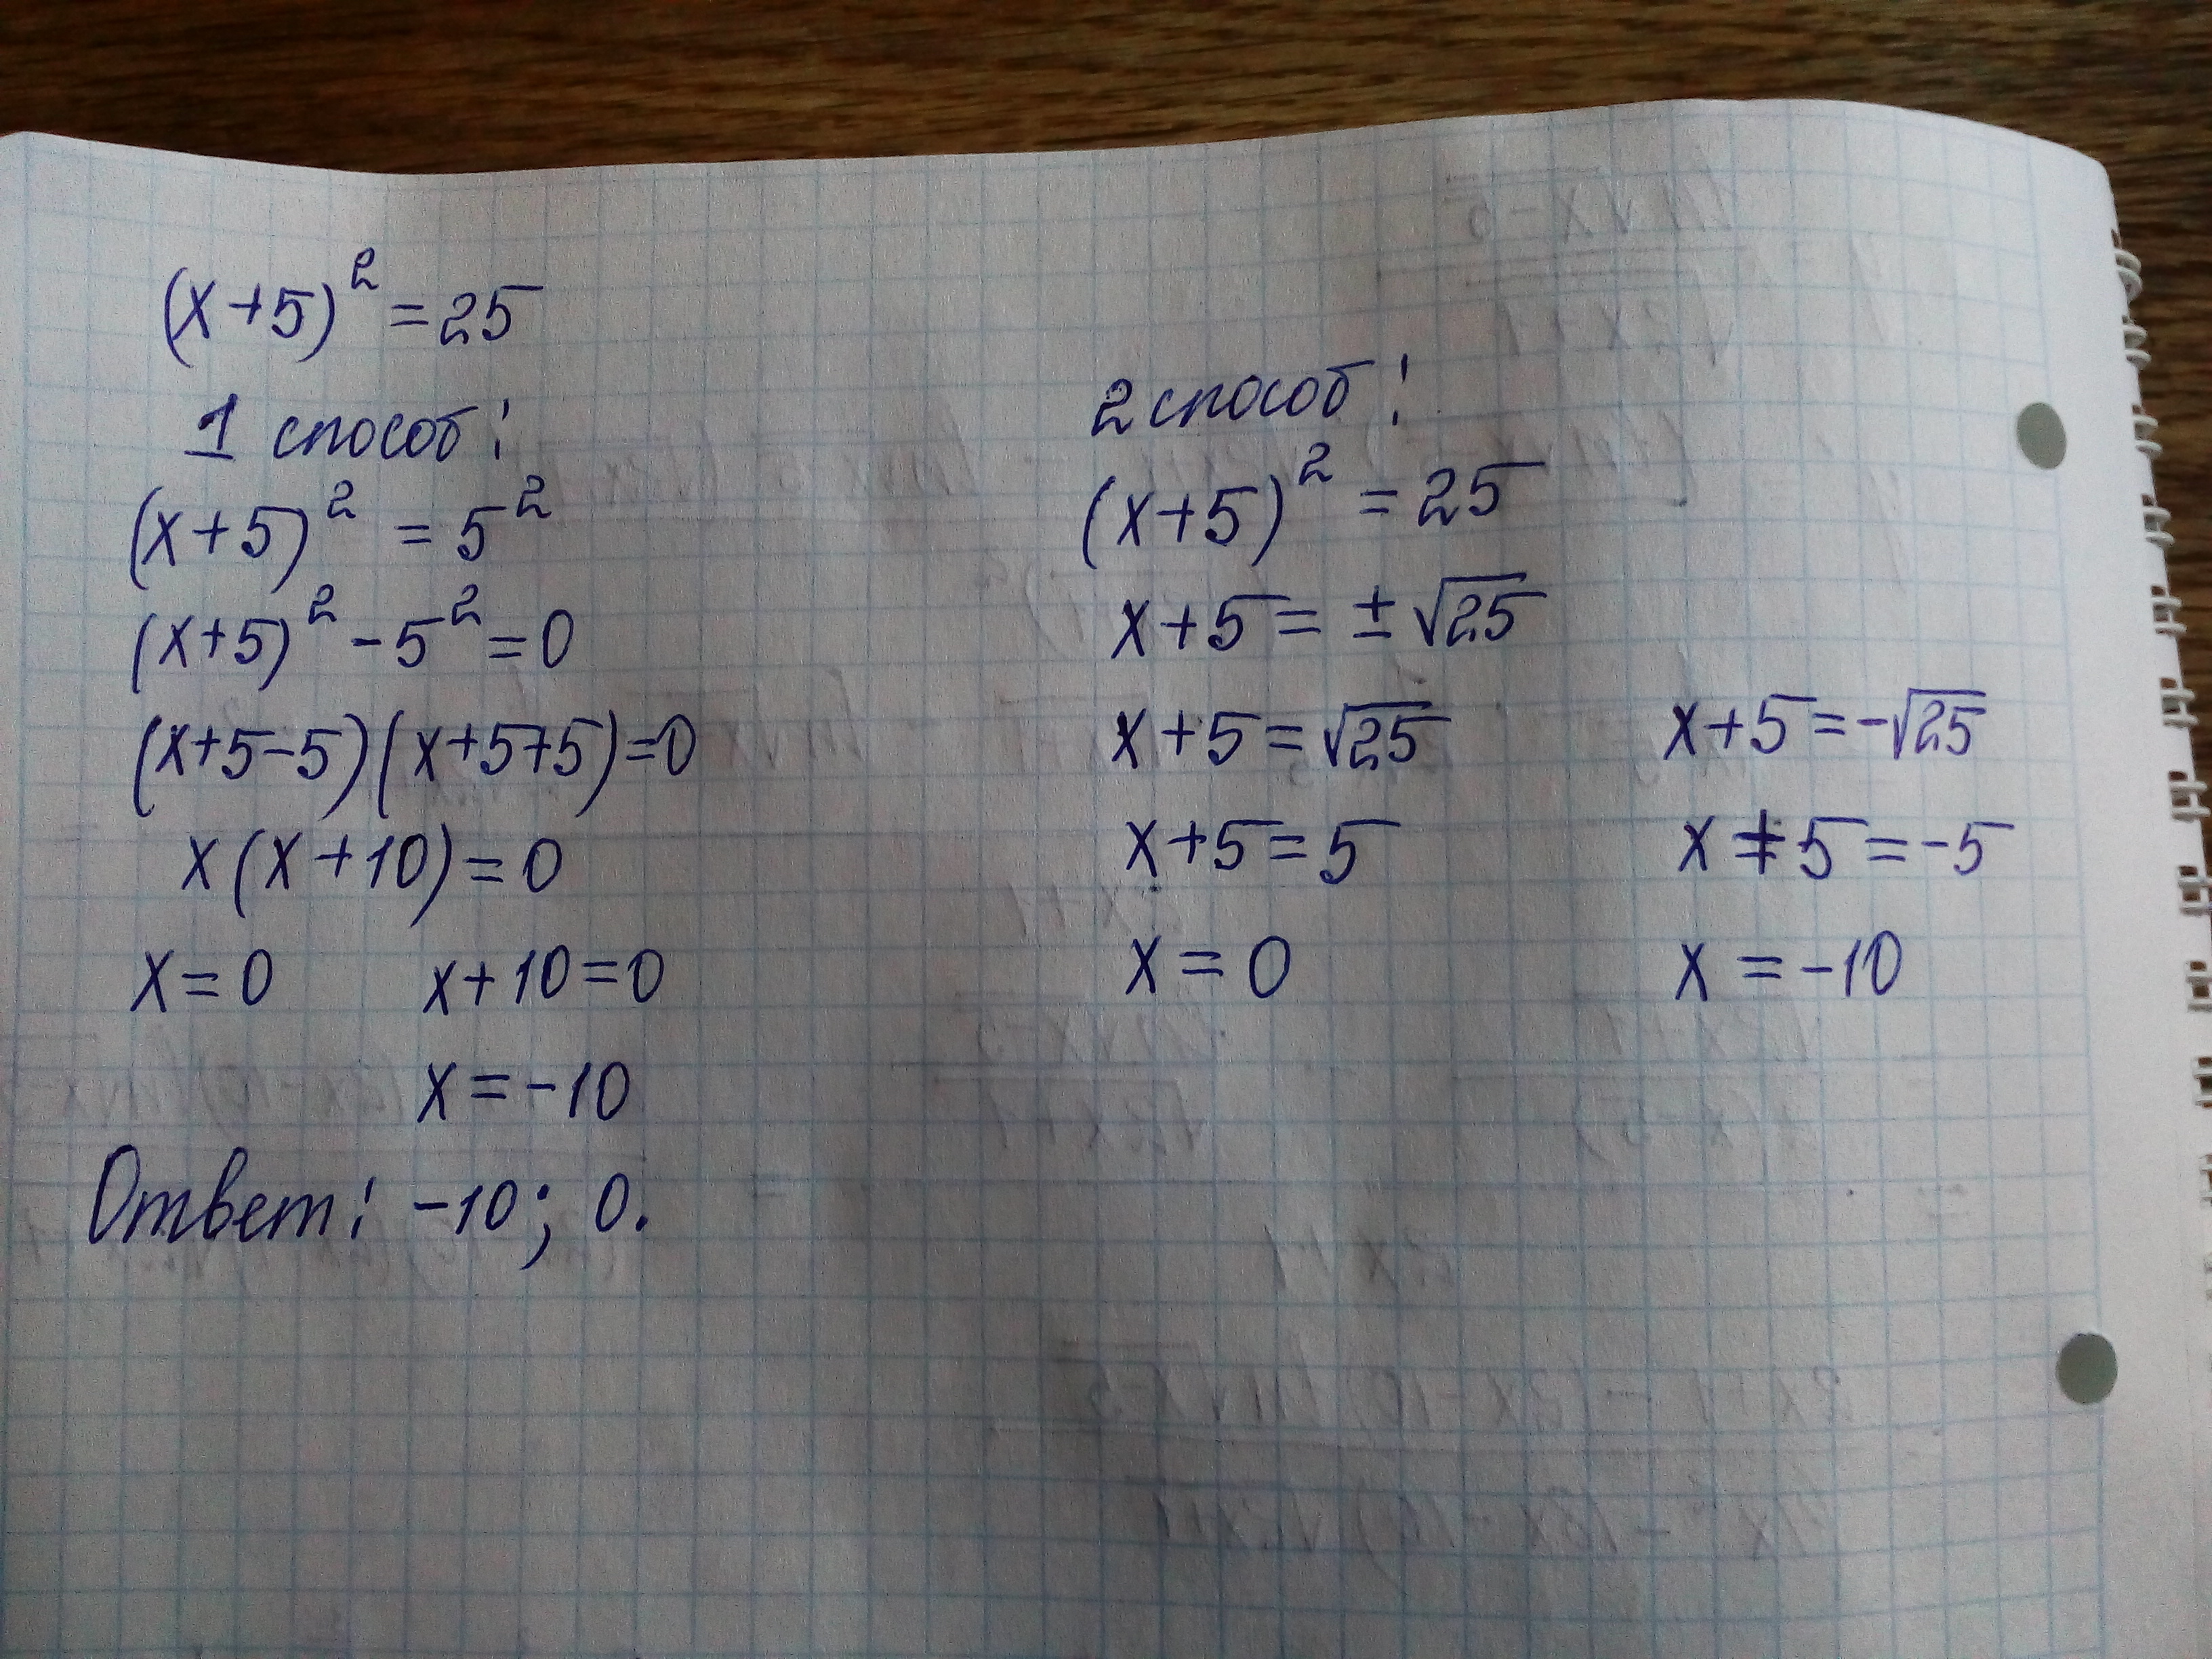 (x+5)² = 25
1 способ:
(x+5)² = 5²
(x+5)² - 5² = 0
(x+5-5)(x+5+5)=0
x(x+10)=0
x=0 x+10=0
x=-10
Ответ: -10; 0.
2 способ:
(x+5)² = 25
x+5= ±√25
x+5=√25 x+5=-√25
x+5=5 x+5=-5
x=0 x=-10